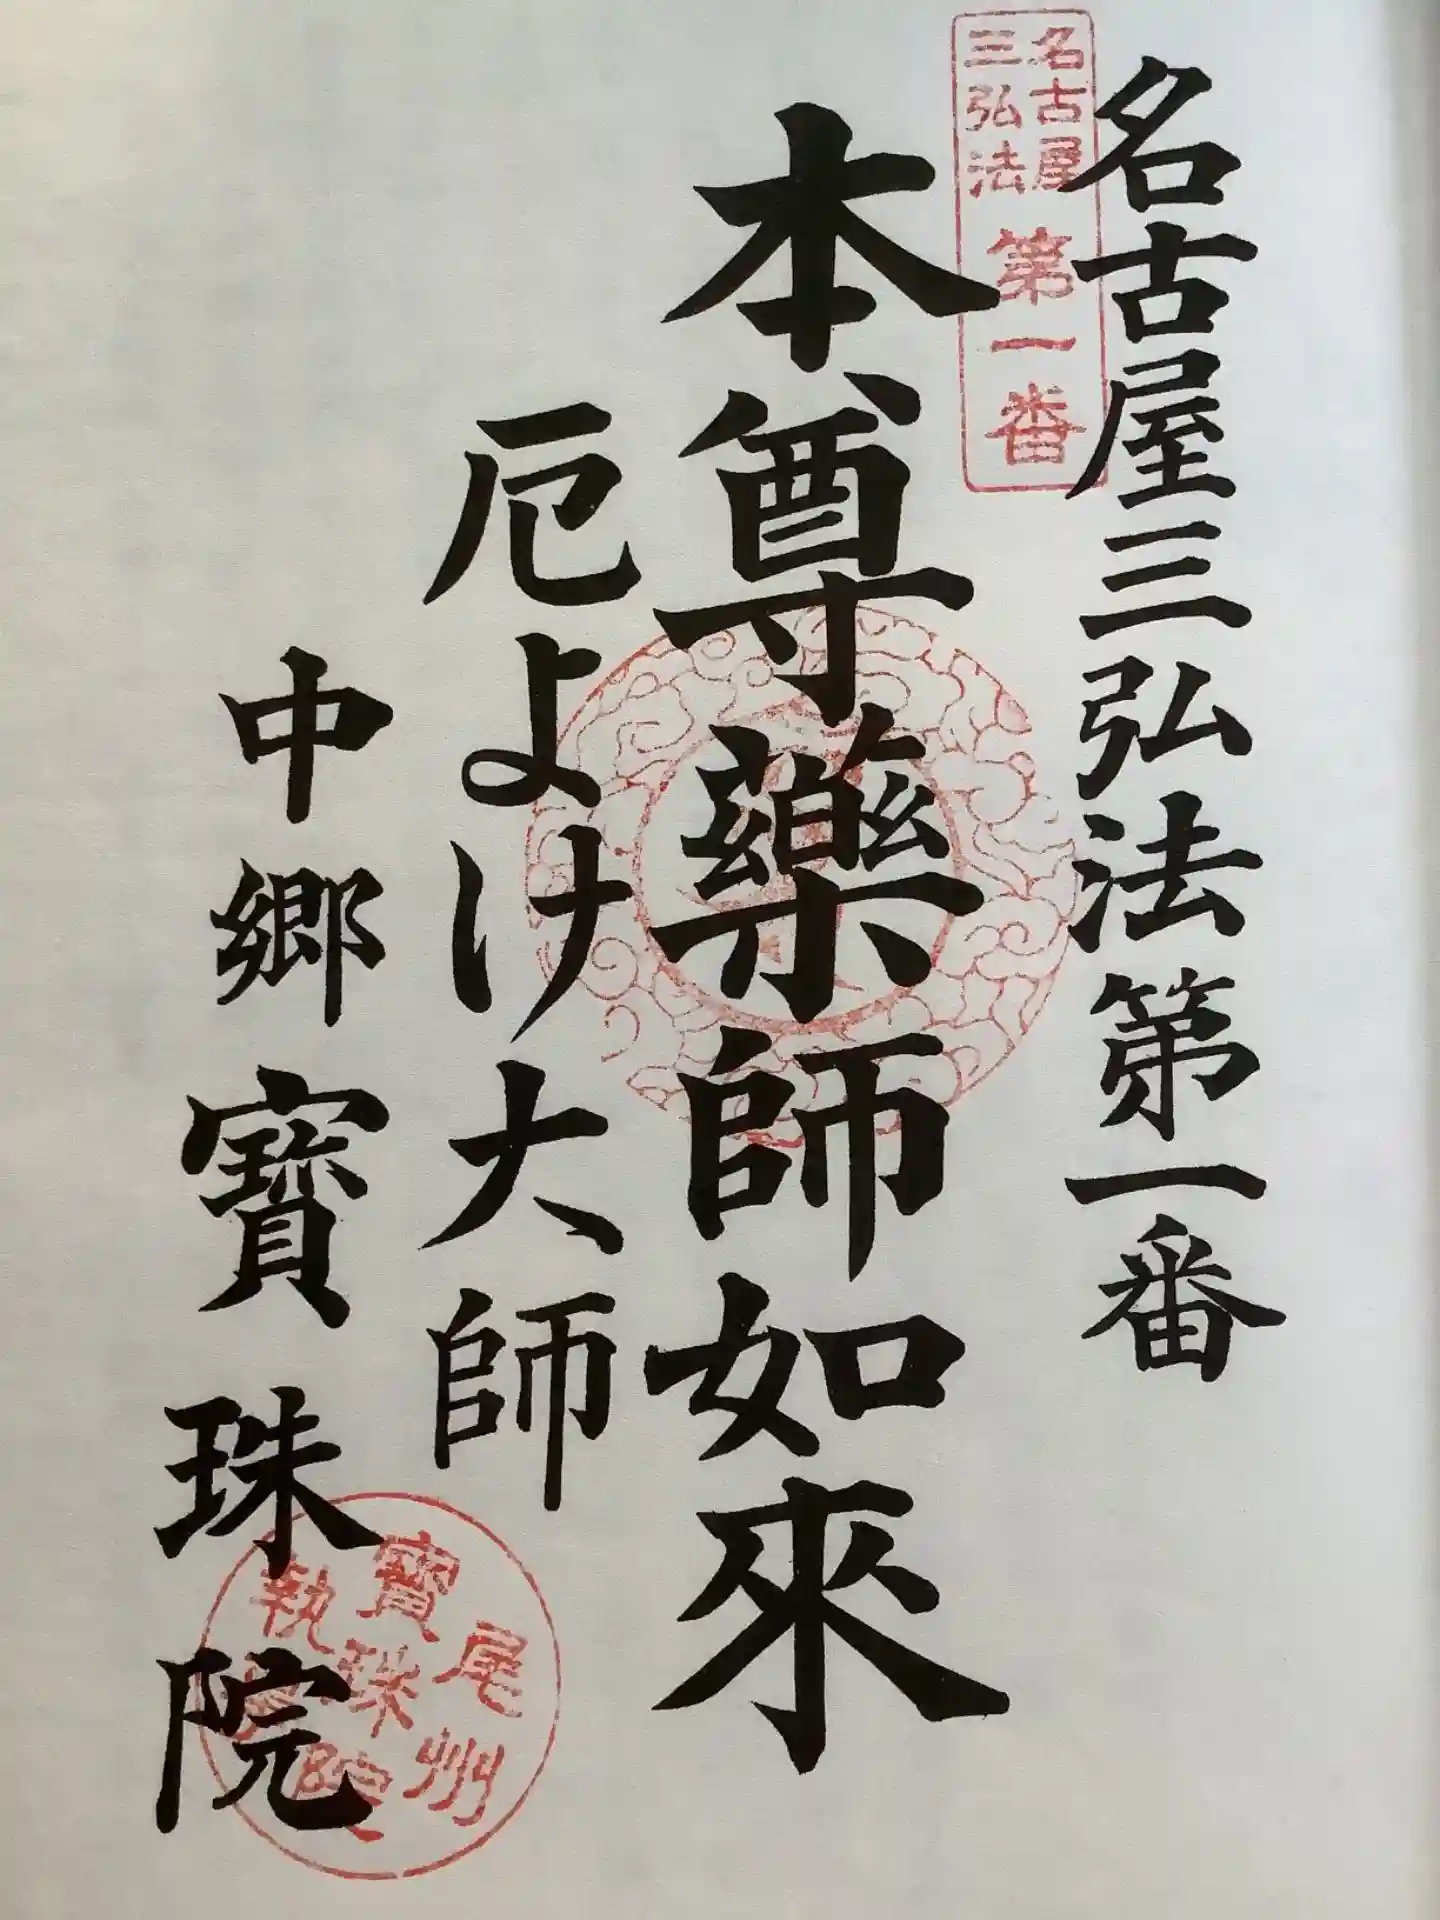 名古屋三弘法第一番
名古屋
三弘法
第一番
本尊藥師如來
厄よけ大師
中郷寶珠院
尾州
寶珠院
執